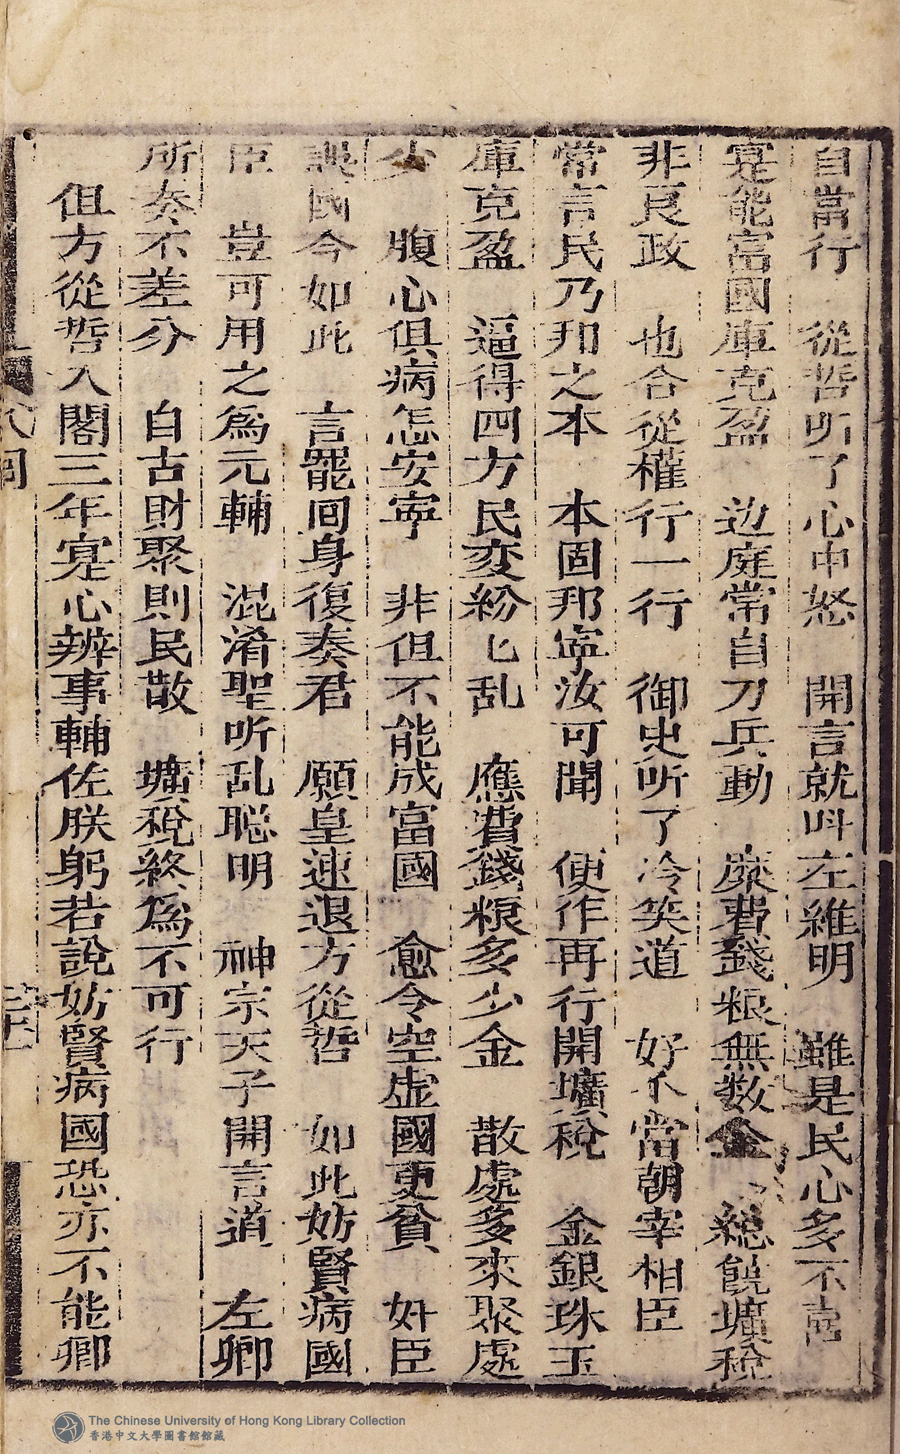 自當行　從哲听了心中怒　開言就呌左維明　雖是民心多不
寔能富國庫克盈　边庭常自刀兵動　糜費錢粮無数金　総饒壙稅
非良政　也合從權行一行　御史听了冷笑道　好个當朝宰相臣
常言民乃邦之本　本固邦寜汝可聞　便作再行開壙稅　金銀珠玉
庫克盈　逼得四方民变紛匕乱　應費錢粮多少金　散處多來聚處
少　腹心俱病怎安寧　非但不能成富國　愈令空虚國更貧　奸臣
誤國今如此　言罷回身復奏君　願皇速退方從哲　如此妨賢病國
臣　豈可用之爲元輔　混淆聖听乱聪明　神宗天子開言道　左卿
所奏不差分　自古財聚則民散　壙稅終爲不可行
但方從哲入閣三年寔心辨事輔佐朕躬若說妨賢病國恐亦不能卿
The Chinese University of Hong Kong Library Collection
香港中文大學圖書館館藏